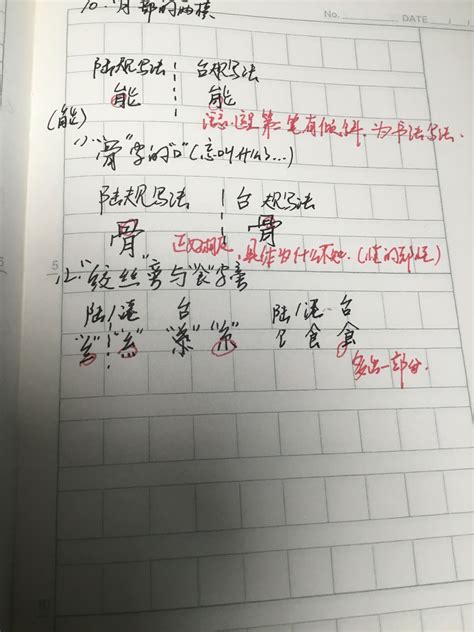 No.
DATE
10. 月部的两横
陆规写法 台规写法
能 能
(能)
注意这里第一笔有倾斜,为书法写法.
11. "骨"字的"口"(忘叫什么了...)
陆规写法 台规写法
骨 骨
正好相反,具体为什么不知.(懂的部分)
5
12. "绞丝"旁与"食"字旁
陆/港 台 陆/港 台
"纟" "糹" "糸" "糸" 饣 飠 食
多出一部分.
10